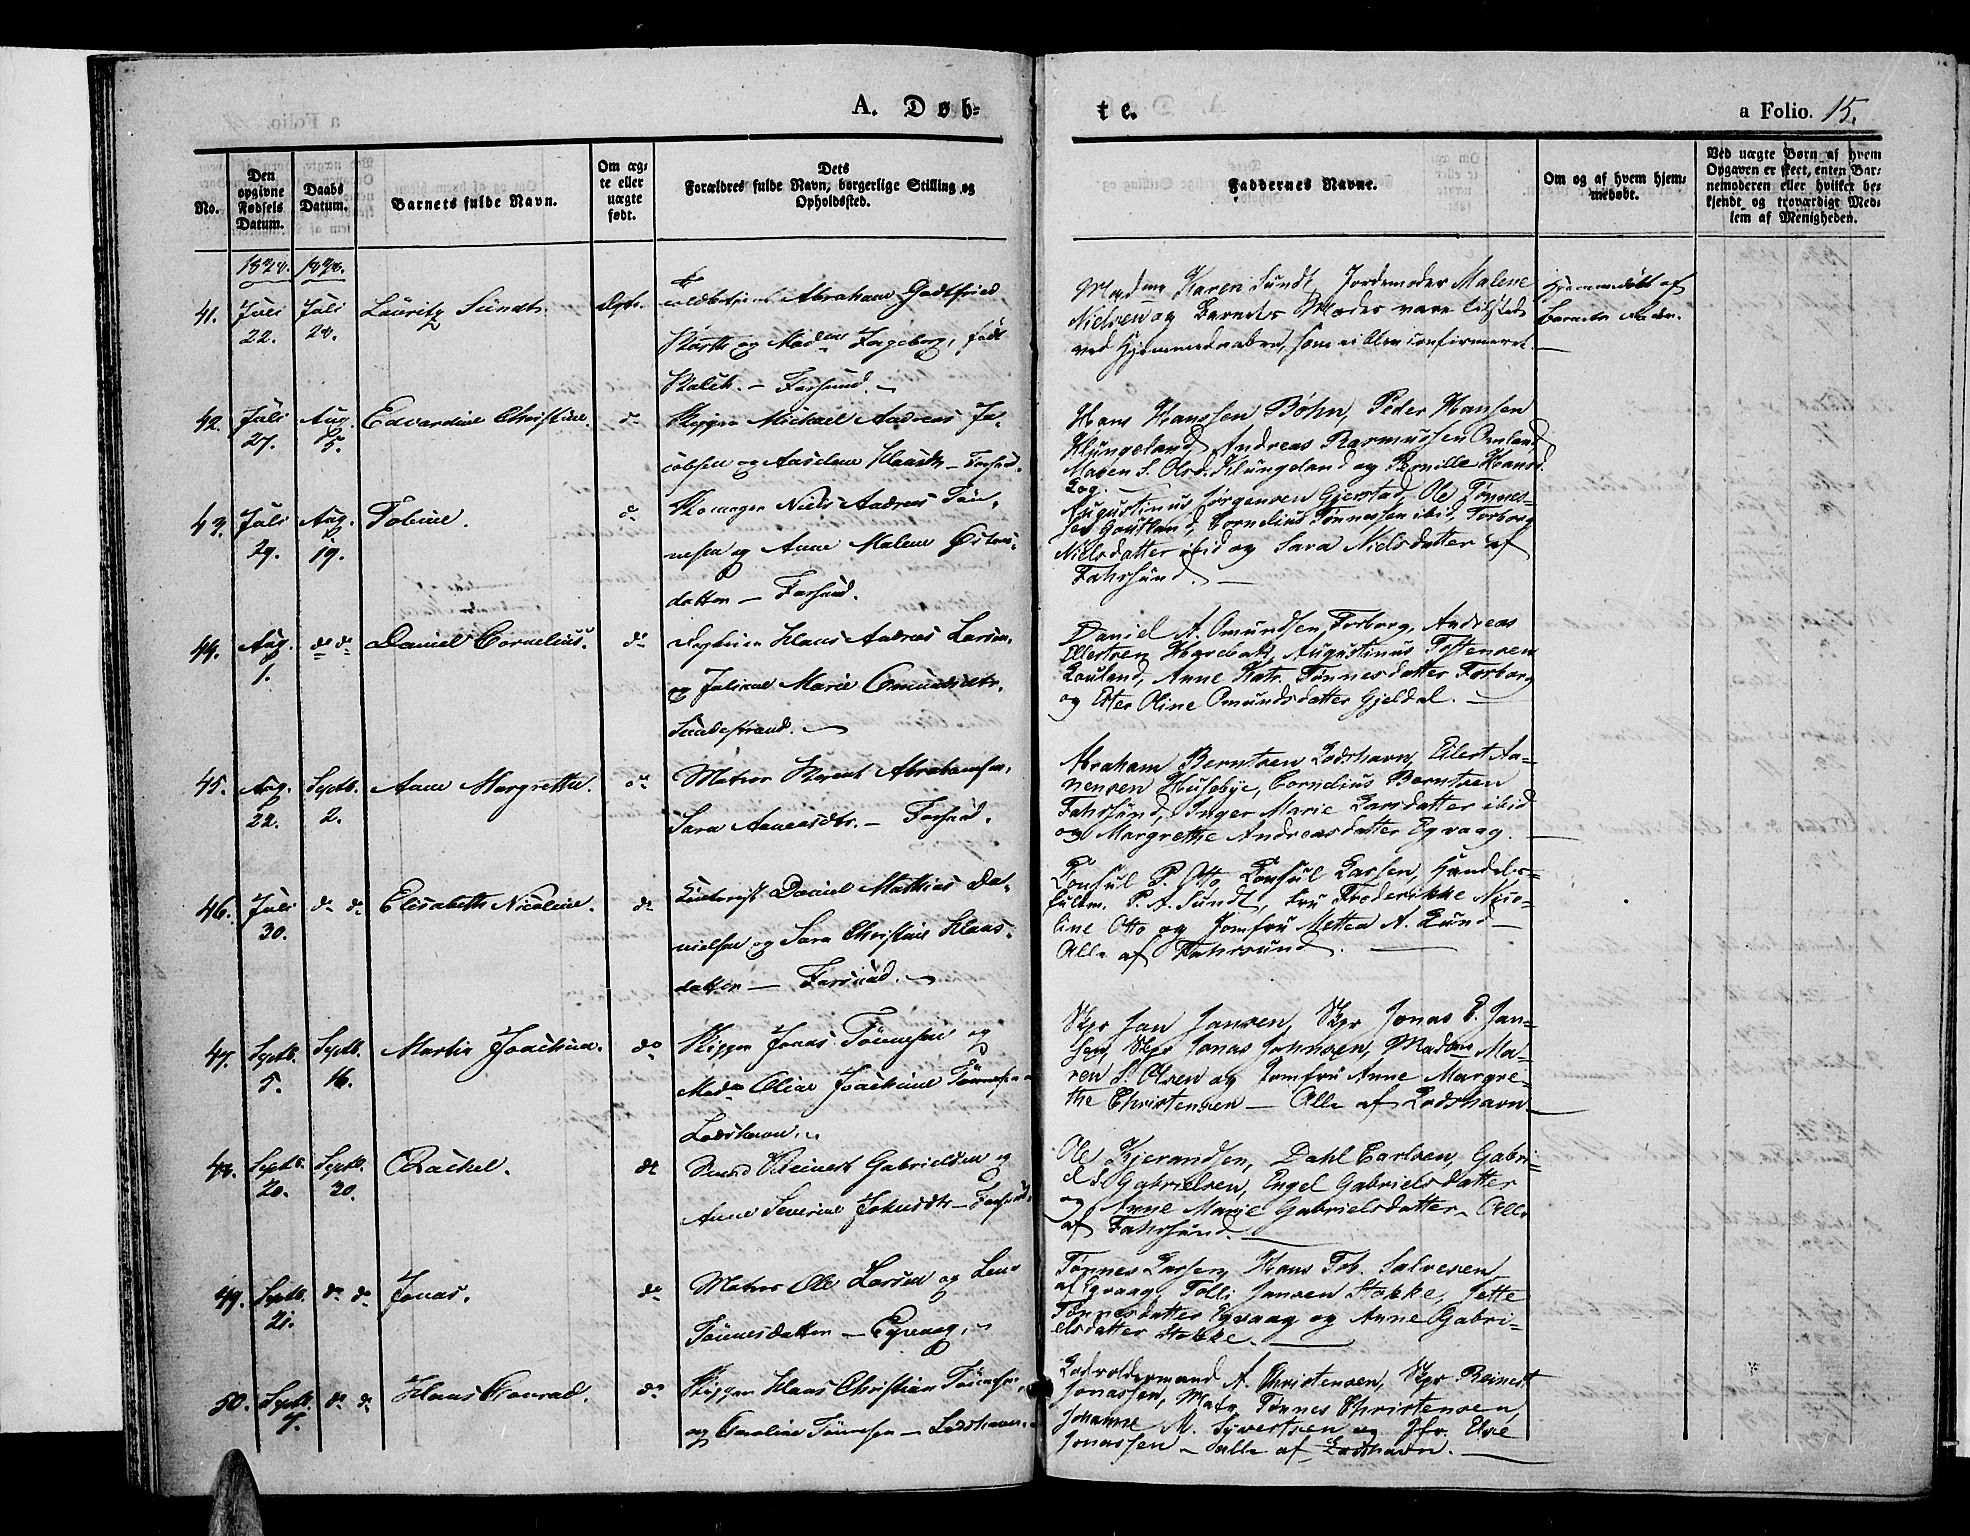 A. Døb-
te.
a Folio. 15.
No.
Den opgivne Fødsels Datum.
Daabs Datum.
Barnets fulde Navn.
Om ægte eller uægte født.
Dets Forældres fulde Navn, borgerlige Stilling og Opholdssted.
Faddernes Navne.
Om og af hvem hjemmedøbt.
Ved uægte Børn af hvem Opgaven er skeet, enten Barnemoderen eller hvilket bekjendt og troværdigt Medlem af Menigheden.
41. Juli 22. Juli 28. Lauritz Sundt. Ægte.
Abraham Godtfried
og Mad Ingeborg, født
Balch. — Farsund. —
Madme Karen Sundt, Jordemoder Malene
Nielsen og Barnets Moder vare tilstede
ved Hjemmedaaben, som ei blev confirmeret. —
Hjemmedøbt af
Barnets Fader.
42. Juli 27. Aug. 5. Edvardine Christine. do
Skipper Mickael Andreas Ja-
cobsen og Aaselene Klausdtr — Farsund.
Hans Hanssen Bøhn, Peder Hansen
Klungeland, Andreas Rasmussen Omland,
Maren S. Olsd. Klungeland og Pernille Hansd.
Log.
43. Juli 29. Aug. 19. Tobine. do
Niels Andreas Tøn-
nesen og Anne Malene
datter — Farsund.
Augustinus Jørgensen Gjerstad, Ole Tønnes-
sen Goutland, Cornelius Tønnessen ibid, Torborg
Nielsdatter ibid og Sara Nielsdatter af
Fahrsund. —
44. Aug. 1. do do Daniel Cornelius. do
Klaus Andreas Larsen,
og Juliane Marie Omundsdtr.
Sundestrand. —
Daniel A. Omundsen, Torborg, Andreas
Ellertsen Havebak, Augustinus Tostensen
Louland, Anne Katr. Tønnesdatter Torborg
og Ester Oline Omundsdatter Gjeldal. —
45. Aug. 22. Septb. 2. Anne Margrethe. do
Matros Bernt Abrahamsen,
Sara Aanensdtr. — Farsund.
Abraham Berntsen Lodshavn, Eilert Aa-
nensen Husebye, Cornelius Berntsen
Fahrsund, Inger Marie Larsdatter ibid
og Margrethe Andreasdatter Egvaag. —
46. Juli 30. do do Elisabeth Nicoline. do
Daniel Mathias Da-
nielsen og Sara Christine Klaus-
datter — Farsund. —
Consul P. Otto, Consul Larsen, Handels-
fuldm. P. A. Sundt, Fru Frederikke Nico-
line Otto og Jomfru Mettea A. Lund —
Alle af Fahrsund. —
47. Septb. 5. Septb. 16. Martin Joachim. do
Skipper Jonas Tønnesen og
Mad Oline Joachime Tønnesen
Lodshavn. —
Skpr Jan Jansen, Skpr Jonas E. Jan-
sen, Skpr Jonas Johnsen, Madme Ma-
ren S. Olsen og Jomfru Anne Margre-
the Christensen — Alle af Lodshavn —
48. Septb. 20. Septb. 30. Rachel. do
Reinert Gabrielsen og
Anne Severine Johnsdtr — Farsund.
Ole Kjerandsen, Dahl Carlsen, Gabri-
el S. Gabrielsen, Engel Gabrielsdatter
og Anne Marie Gabrielsdatter — Alle
af Fahrsund. —
49. Septb. 21. do do Jonas. do
Matros Ole Larsen og Lene
Tønnesdatter — Egvaag. —
Tønnes Larsen, Hans Tob. Salvesen
af Egvaag, Tolli Jansen Stokke, Jette
Tønnesdatter Egvaag og Anne Gabri-
elsdatter Stokke. —
50. Septb. 7. do do Klaus Conrad. do
Skipper Klaus Christian Tønnesen,
og Caroline Tønnesen — Lodshavn. —
Lodsoldermand A. Christensen, Skpr Reinert
Jonassen, Mats Tønnes Christensen,
Johanne M. Syvertsen og Jfr. Else
Jonassen — alle af Lodshavn. —